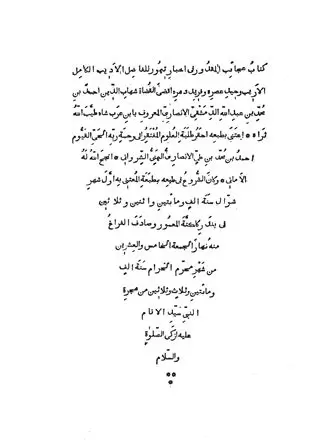 كتاب عجائب المقدور فى اخبار تيمور للفاضل الاديب الكامل
الاريب وحيد عصره وفريد دهره اقضى القضاة شهاب الدين احمد بن
محمد بن عبد الله الدمشقى الانصارى المعروف بابن عرب شاه طيب الله
ثراه * اعتنى بطبعه احقر طلبة العلوم المفتقر الى رحمة ربه المحيى القيوم
احمد بن محمد بن على الانصارى اليمنى الشروانى * انجح الله له
الامانى * وكان الشروع فى طبعه بمطبعة المعتنى به اوّل شهر
شوال سنة الف ومائتين واثنين وثلاثين
فى بندر كلكتّة المعمور وصادف الفراغ
منه نهار الجمعة الخامس والعشرين
من شهر محرم الحرام سنة الف
ومائتين وثلاث وثلاثين من هجرة
النبى سيّد الانام
عليه ازكى الصلوة
والسلام